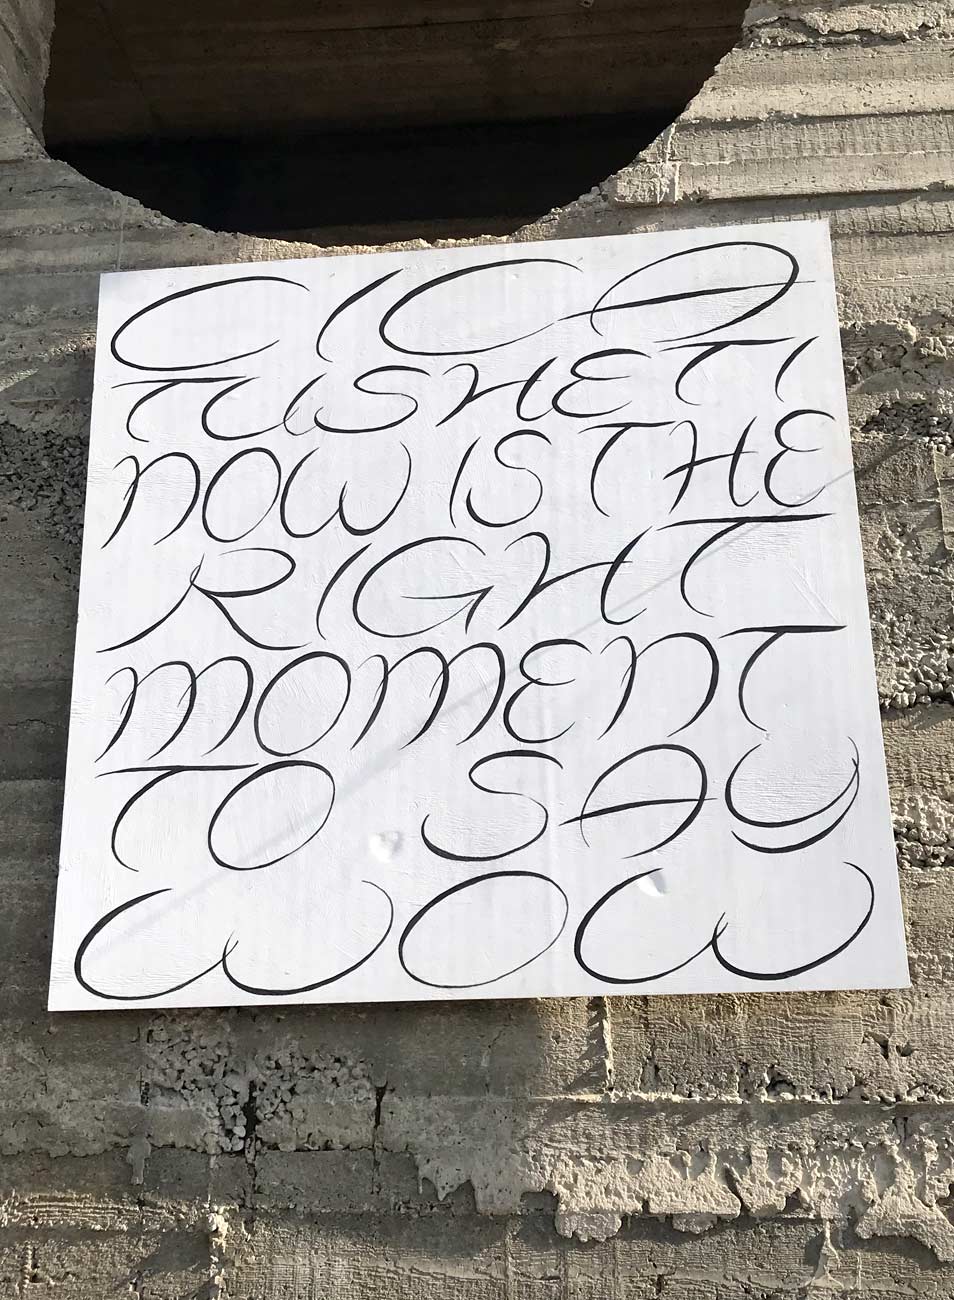 CICA
TUSHETI
NOW IS THE
RIGHT
MOMENT
TO SAY
WOW